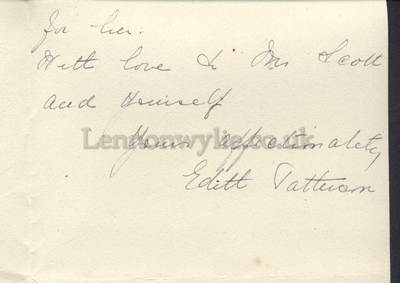 for her.
With love to Mrs Scott
and Himself
Lennonwylie.co.uk
Yours affectionately
Edith Patterson